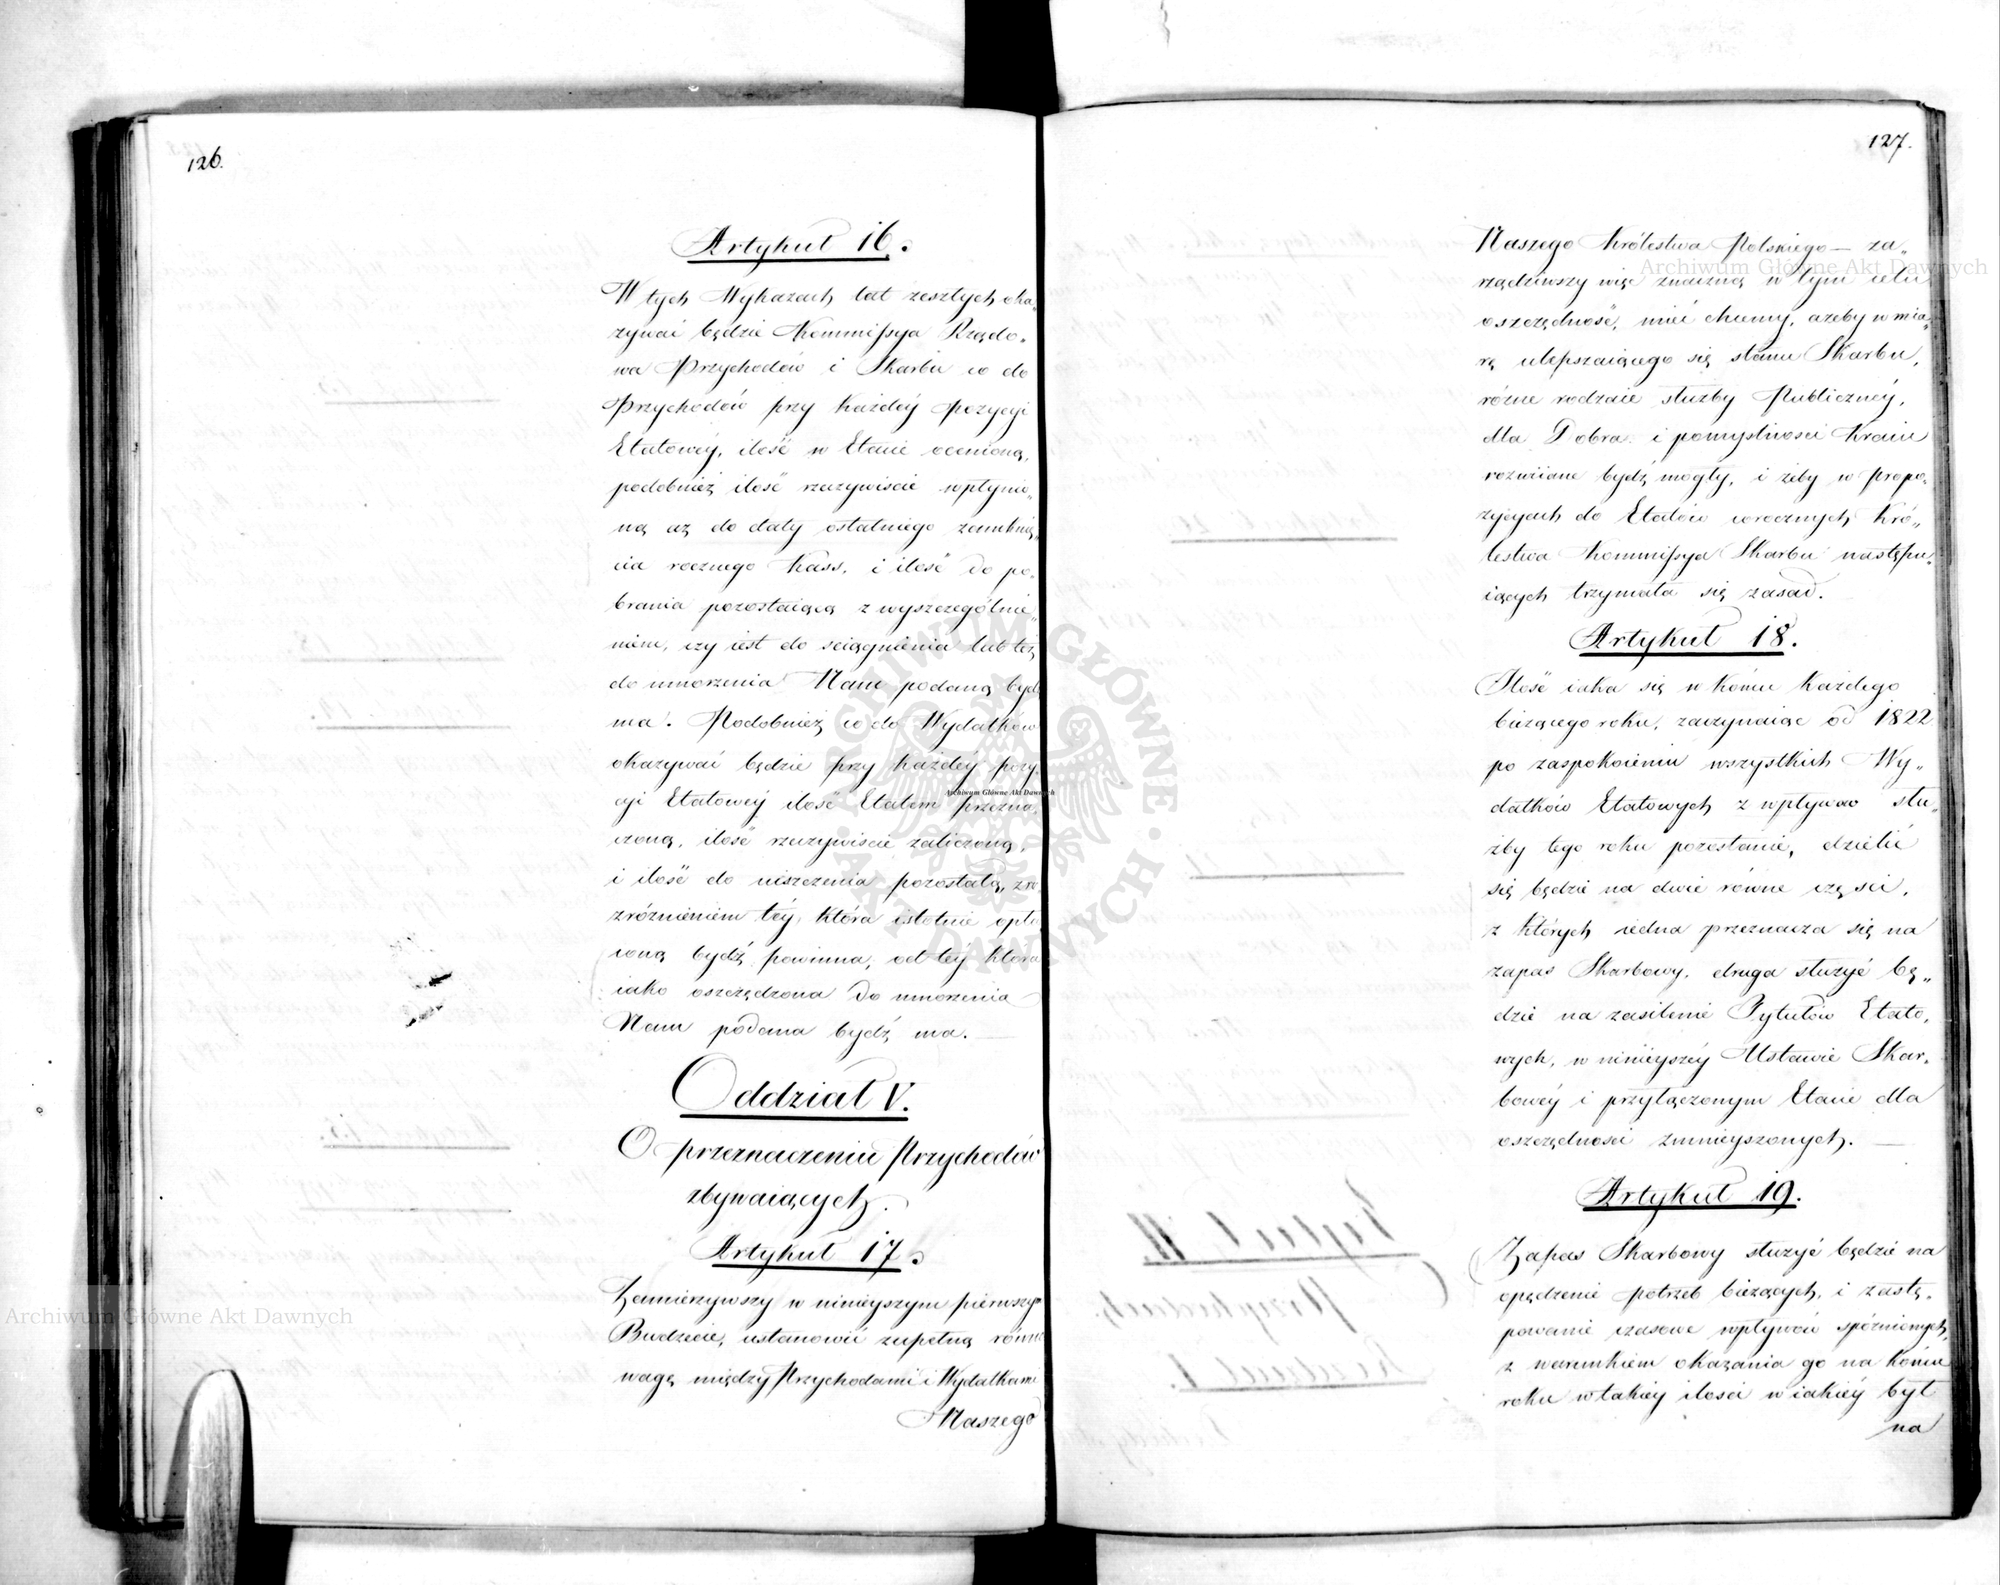 126.
Artykuł 16.
W tych Wykazach lat zeszłych oka„
zywać będzie Kommissya Rządo„
wa Przychodów i Skarbu co do
Przychodów przy każdéy Pozycyi
Etatowéy, ilość w Etacie ocenioną,
podobnież ilość rzeczywiście wpłynio„
ną aż do daty ostatniego zamknię„
cia rocznego Kass, i ilość do po„
brania pozostaiącą z wyszczególnie„
niem, czy iest do ściągnienia lub też
do umorzenia Nam podaną bydź
ma. Podobnież co do Wydatków
okazywać będzie przy każdéy pozy„
cyi Etatowéy ilość Etatem przezna„
czoną, ilość rzeczywiście zaliczoną,
i ilość do uiszczenia pozostałą, z ro„
zróżnieniem téy, która istotnie opła„
coną bydź powinna, od téy która
iako oszczędzona do umorzenia
Nam podana bydź ma. —
Oddział V.
O przeznaczeniu Przychodów
zbywaiących.
Artykuł 17.
Zamierzywszy w ninieyszym pierwszym
Budżecie, ustanowić zupełną równo
wagę między Przychodami i Wydatkami
Naszego
127.
Naszego Królestwa Polskiego — za„
rządziwszy więc znaczną w tym celu
oszczędność, mieć chcemy, ażeby w mia„
rę ulepszaiącego się stanu Skarbu,
różne rodzaie służby Publicznéy,
dla Dobra i pomyślności Kraiu
rozwiiane bydź mogły, i żeby w propo„
zycyach do Etatów corocznych Kró„
lestwa Kommissya Skarbu następu„
iących trzymała się zasad.
Artykuł 18.
Ilość iaka się w końcu każdego
bieżącego roku, zaczynaiąc od 1822
po zaspokoieniu wszystkich Wy„
datków Etatowych z wpływów słu„
żby tego roku pozostanie, dzielić
się będzie na dwie równe części,
z których iedna przeznacza się na
zapas Skarbowy, druga służyć bę„
dzie na zasilenie Tytułów Etato„
wych, w ninieyszéy Ustawie Skar„
bowéy i przyłączonym Etacie dla
oszczędności zmnieyszonych. —
Artykuł 19.
Zapas Skarbowy służyć będzie na
opędzenie potrzeb bieżących, i zastę„
powanie czasowe wpływów spóźnionych,
z warunkiem okazania go na końcu
roku w takiéy ilości w iakiéy był
na
Archiwum Główne Akt Dawnych
Archiwum Główne Akt Dawnych
Archiwum Główne Akt Dawnych
ARCHIWUM GŁÓWNE AKT DAWNYCH